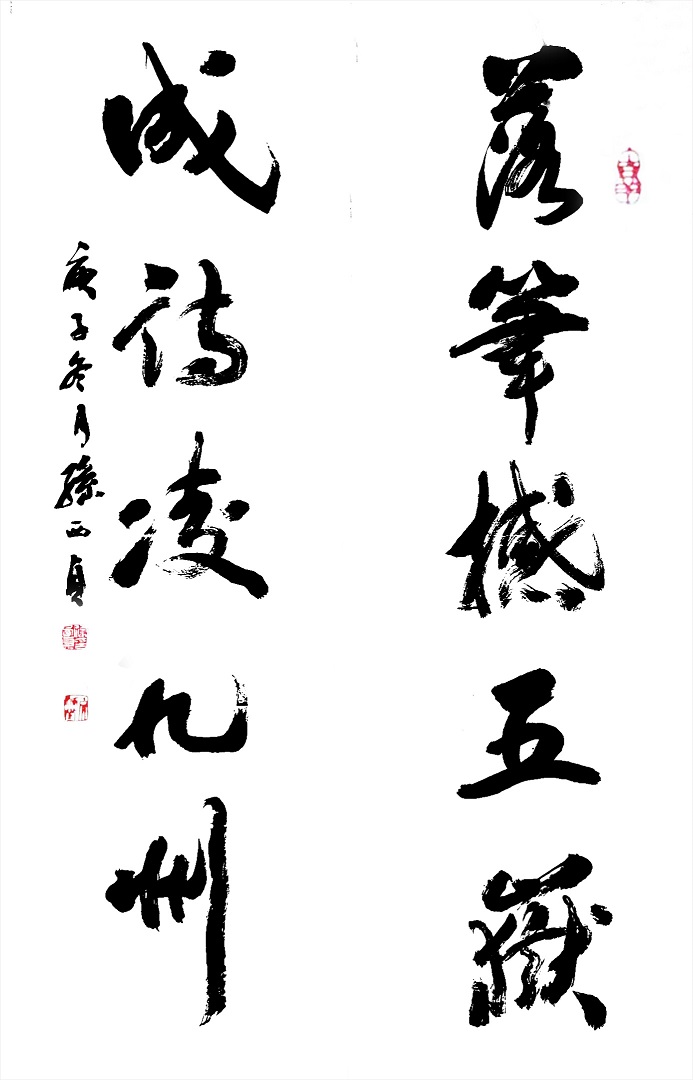 落筆撼五嶽
成詩凌九州
庚子冬月孫西貞